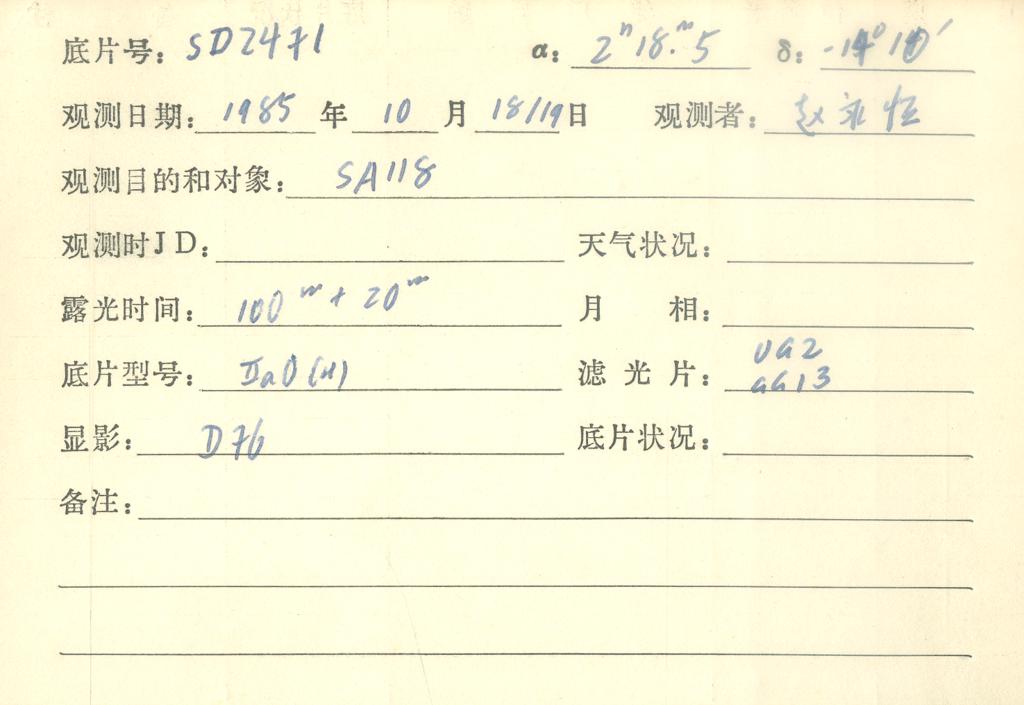 底片号: SD2471 α: 2ʰ18.ᵐ5 δ: -14°10′
观测日期: 1985 年 10 月 18/19 日 观测者: 赵永恒
观测目的和对象: SA118
观测时JD: 天气状况:
露光时间: 100ᵐ + 20ᵐ 月 相:
底片型号: IIaO(H) 滤光片: UG2
GG13
显影: D76 底片状况:
备注: